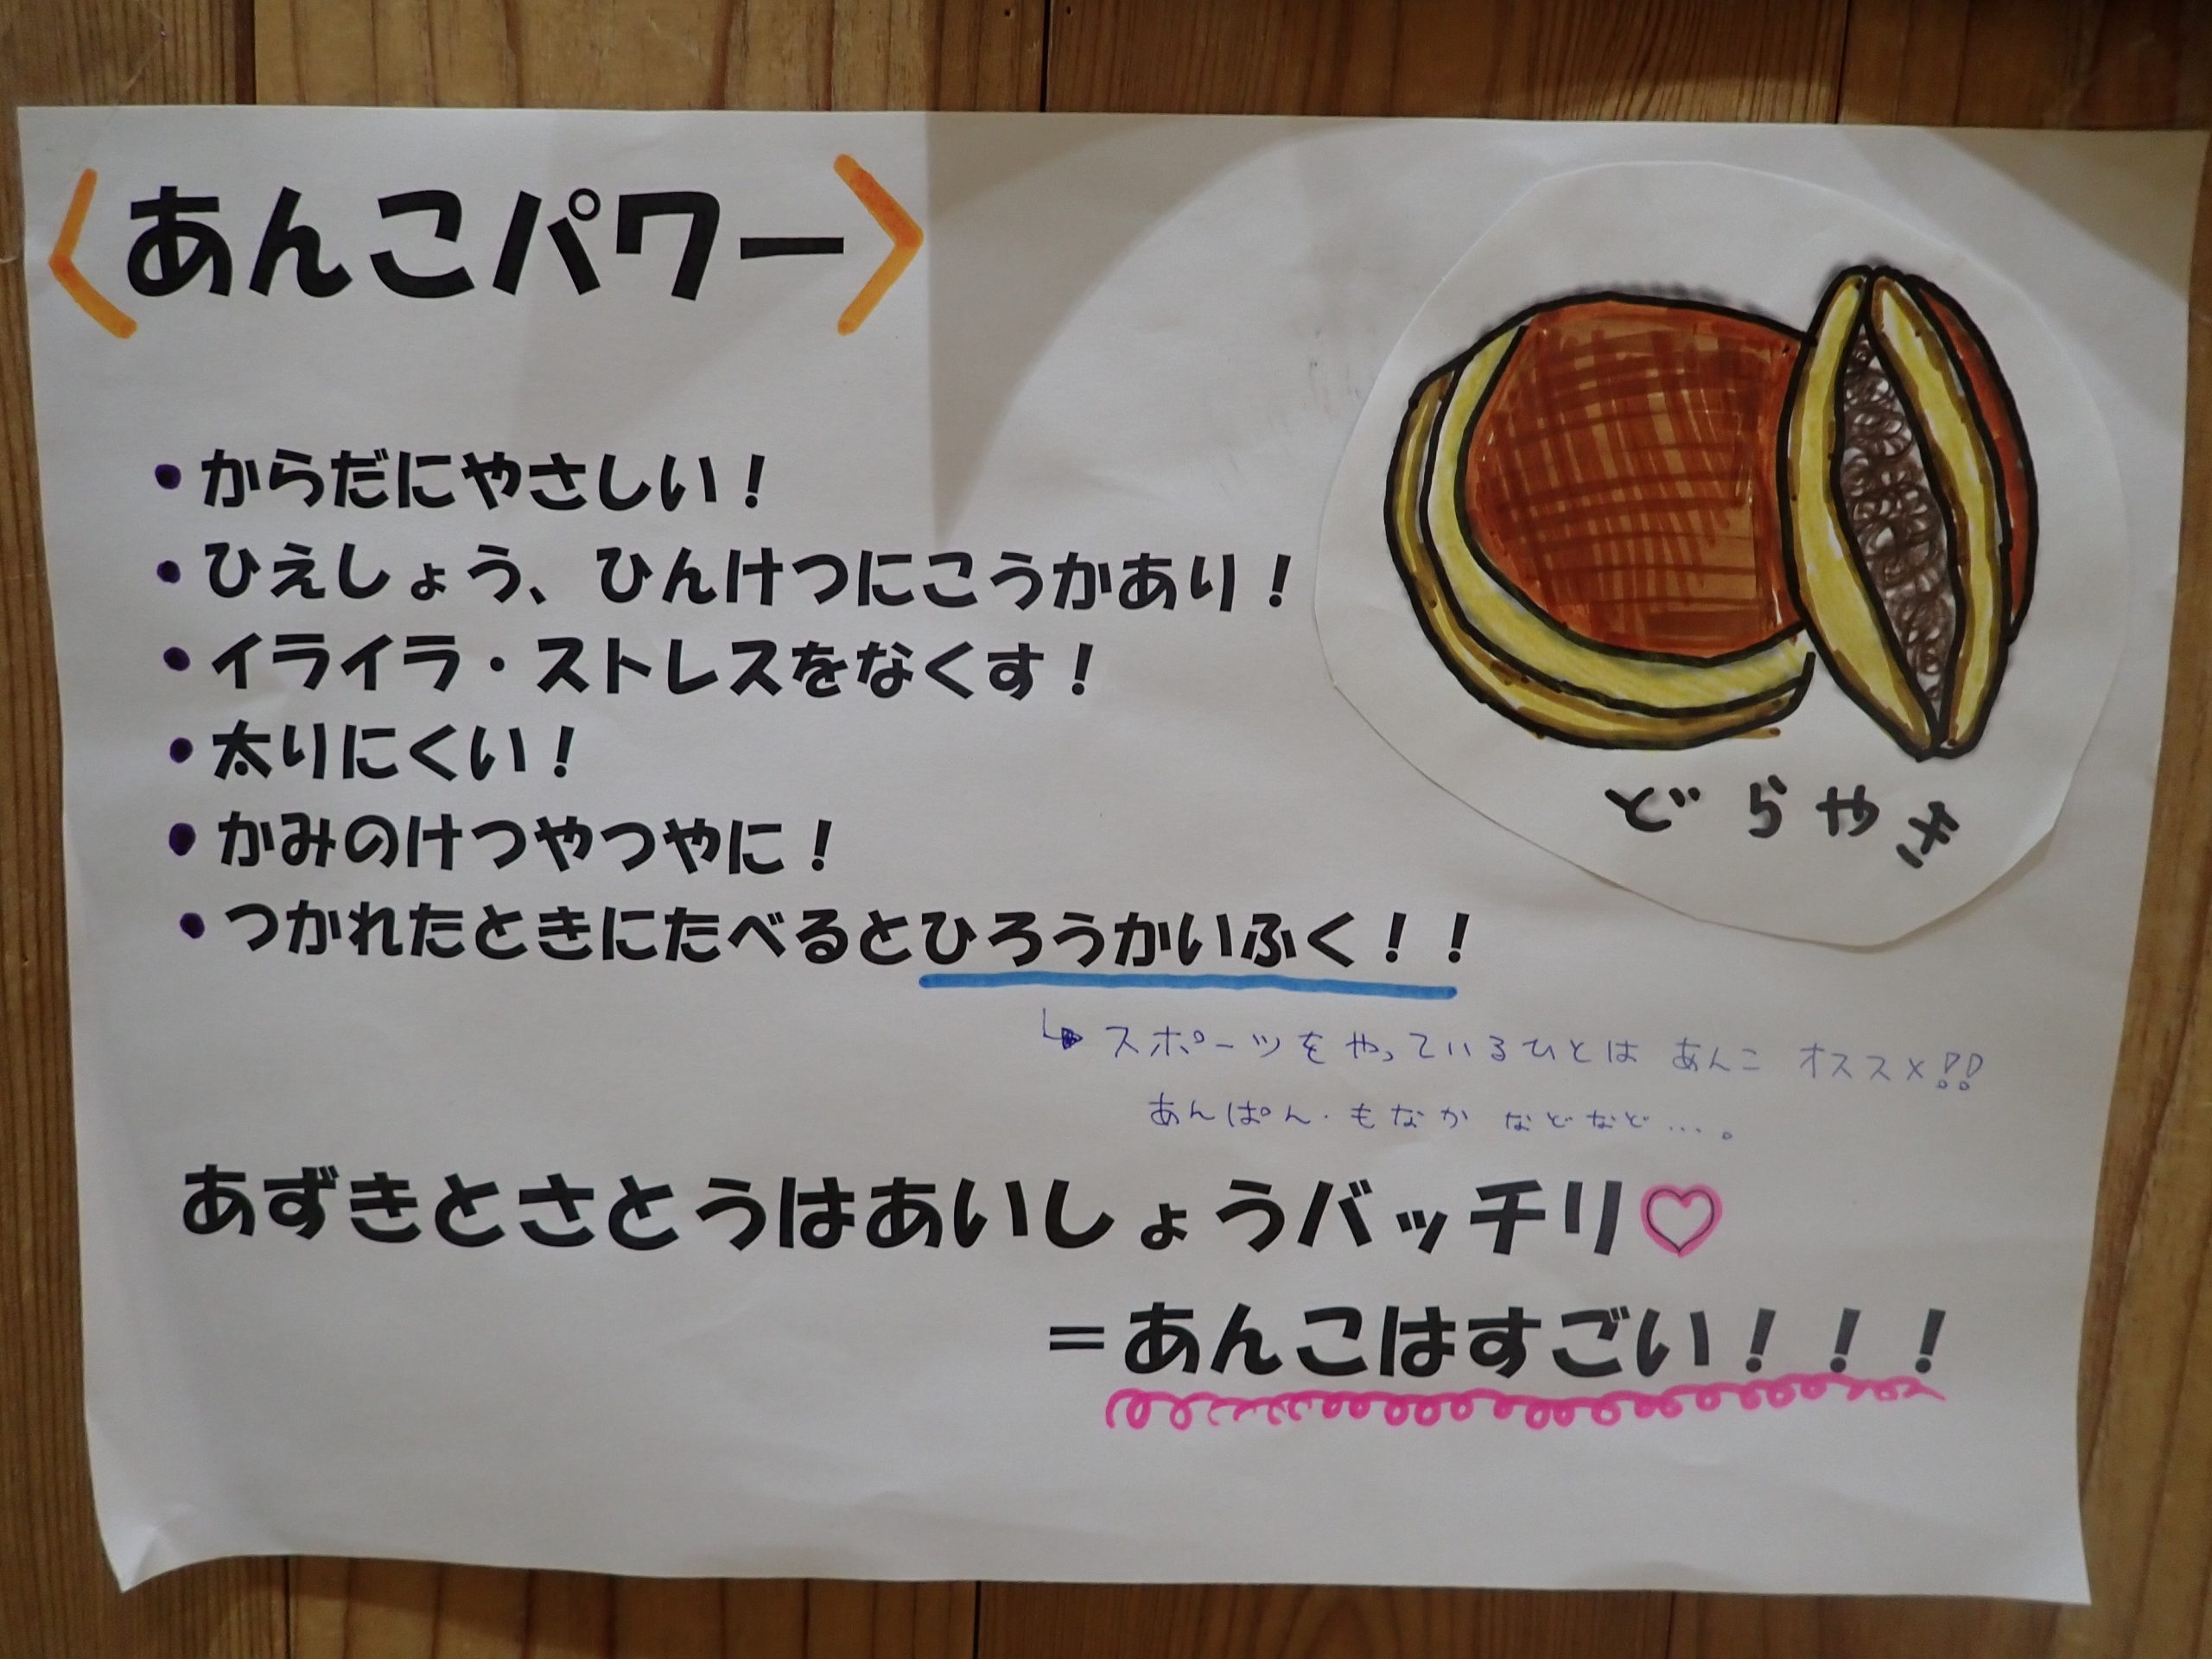 〈あんこパワー〉
・からだにやさしい！
・ひえしょう、ひんけつにこうかあり！
・イライラ・ストレスをなくす！
・太りにくい！
・かみのけつやつやに！
・つかれたときにたべるとひろうかいふく！！
↳スポーツをやっているひとは あんこ オススメ!!
あんぱん・もなか などなど…。
あずきとさとうはあいしょうバッチリ♡
＝あんこはすごい！！！
どらやき